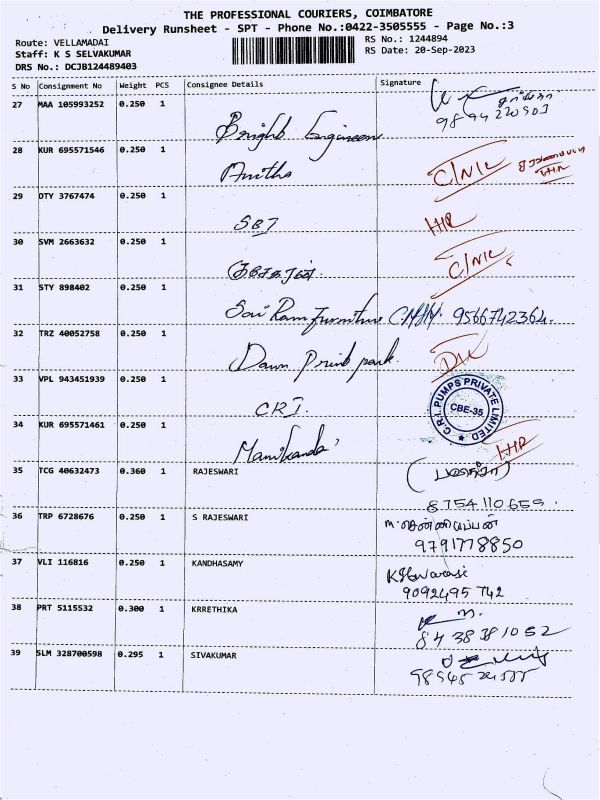 THE PROFESSIONAL COURIERS, COIMBATORE
Delivery Runsheet - SPT - Phone No.:0422-3505555 - Page No.:3
Route: VELLAMADAI
RS No.: 1244894
Staff: K S SELVAKUMAR
RS Date: 20-Sep-2023
DRS No.: DCJB124489403
S No Consignment No Weight PCS Consignee Details Signature
27 MAA 105993252 0.250 1
Bright Engineers
28 KUR 695571546 0.250 1
Anitha C/NIL
29 OTY 3767474 0.250 1
SBI HR
30 SVM 2663632 0.250 1
C/NIL
31 STY 898402 0.250 1
Sai Ram furniture 9566742364.
32 TRZ 40052758 0.250 1
Dawn Print park.
33 VPL 943451939 0.250 1
CRI.
C.R.I. PUMPS PRIVATE LIMITED
CBE-35
34 KUR 695571461 0.250 1
Manikanda
35 TCG 40632473 0.360 1 RAJESWARI
8754110659.
36 TRP 6728676 0.250 1 S RAJESWARI
9791778850
37 VLI 116816 0.250 1 KANDHASAMY
9092495742
38 PRT 5115532 0.300 1 KRRETHIKA
8438381052
39 SLM 328700598 0.295 1 SIVAKUMAR